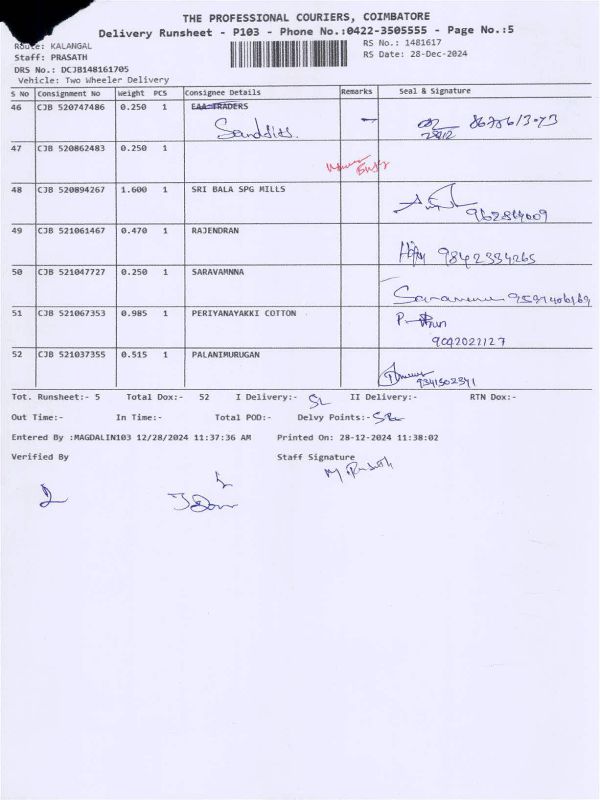 THE PROFESSIONAL COURIERS, COIMBATORE
Delivery Runsheet - P103 - Phone No.:0422-3505555 - Page No.:5
Route: KALANGAL
RS No.: 1481617
Staff: PRASATH
RS Date: 28-Dec-2024
DRS No.: DCJB148161705
Vehicle: Two Wheeler Delivery
S No Consignment No Weight PCS Consignee Details Remarks Seal & Signature
46 CJB 520747486 0.250 1 EAA TRADERS
47 CJB 520862483 0.250 1
48 CJB 520894267 1.600 1 SRI BALA SPG MILLS
49 CJB 521061467 0.470 1 RAJENDRAN
9842334265
50 CJB 521047727 0.250 1 SARAVAMNNA
51 CJB 521067353 0.985 1 PERIYANAYAKKI COTTON
9042021127
52 CJB 521037355 0.515 1 PALANIMURUGAN
9341502341
Tot. Runsheet:- 5 Total Dox:- 52 I Delivery:- II Delivery:- RTN Dox:-
Out Time:- In Time:- Total POD:- Delvy Points:-
Entered By :MAGDALIN103 12/28/2024 11:37:36 AM Printed On: 28-12-2024 11:38:02
Verified By Staff Signature
M. Prasath